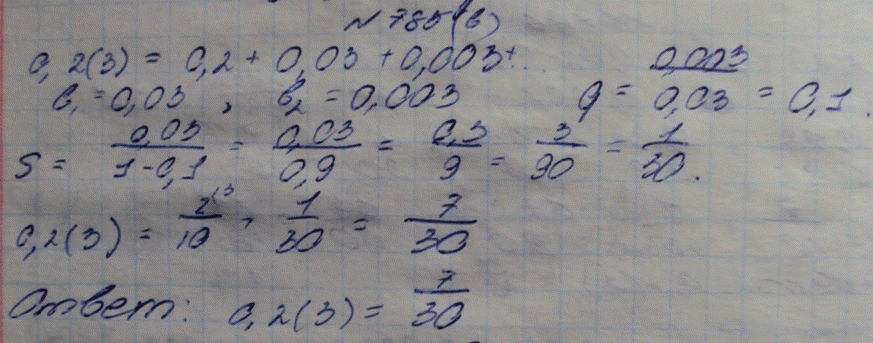 N 785(в)
0,2(3) = 0,2 + 0,03 + 0,003 + ...
в₁ = 0,03 , в₂ = 0,003 q = 0,003/0,03 = 0,1.
S = 0,03/1-0,1 = 0,03/0,9 = 0,3/9 = 3/90 = 1/30.
0,2(3) = 2⁽³/10 + 1/30 = 7/30
Ответ: 0,2(3) = 7/30